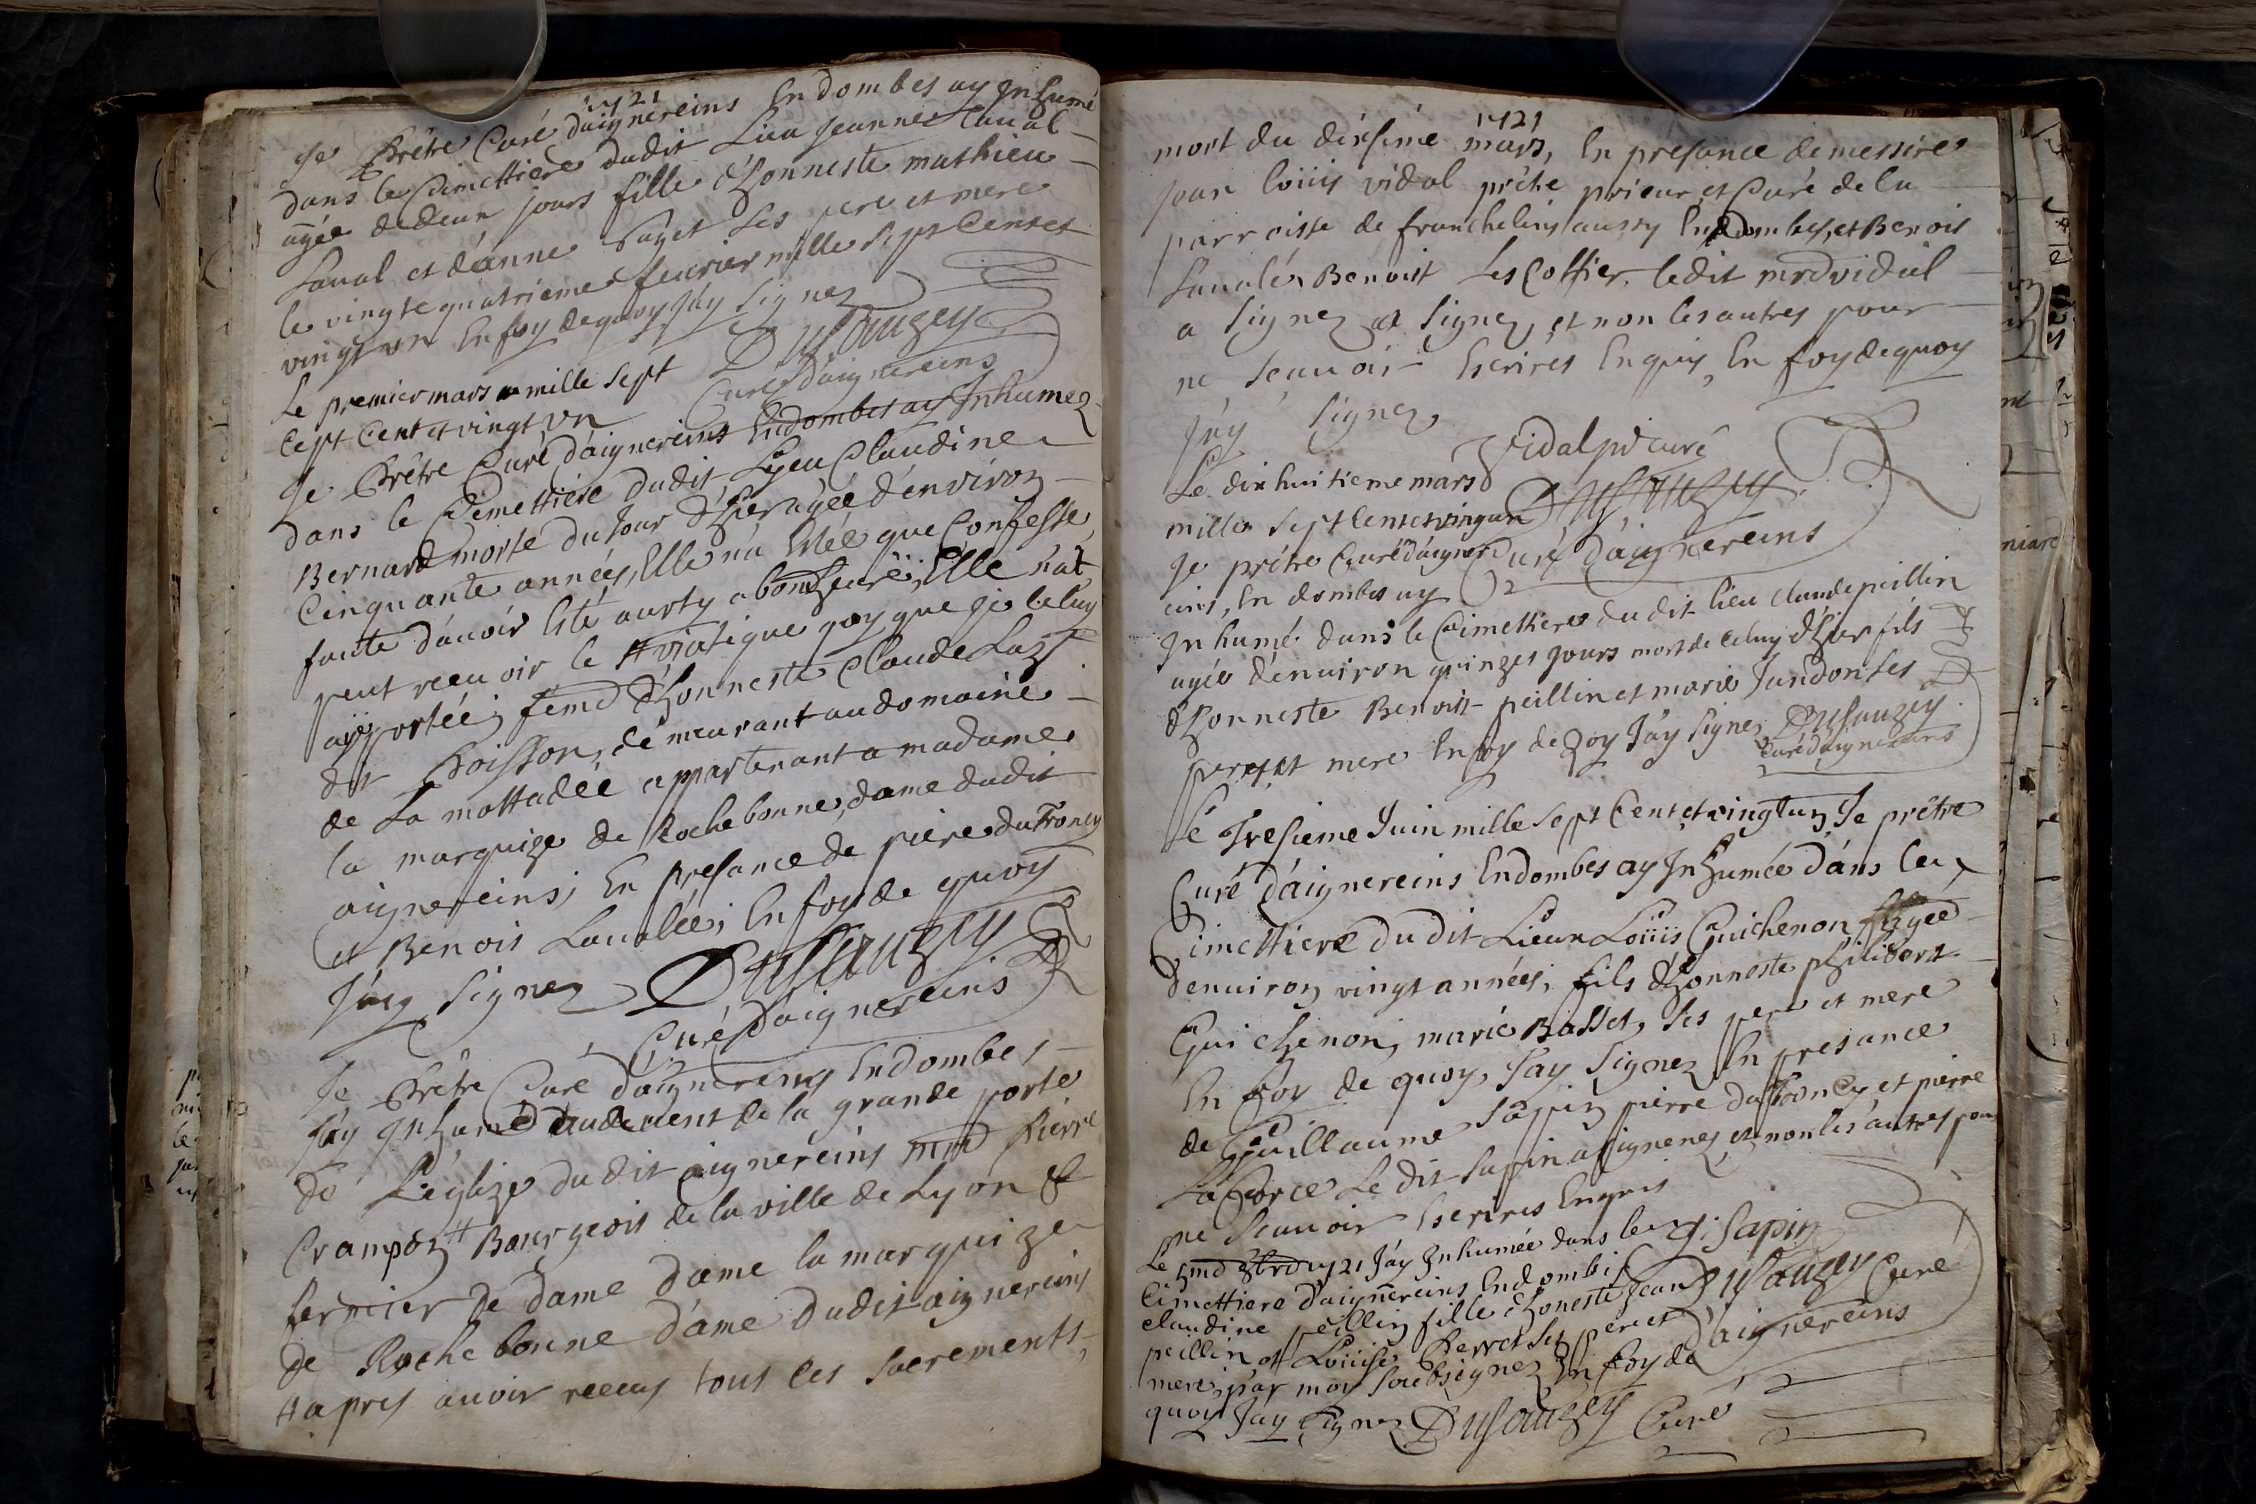 1721
Je Prêtre Curé daignereins En dombes ay Inhumé
dans le Cimettiere dudit Lieu Jeanne Laual
agée de deux jours fille d'honneste mathieu
Laual et d'anne Payet ses pere et mere
le vingte quatrieme feurier mille sept Centet
vingt un En foy de quoy J'ay signez
Dusauzey
Curé d'aignereins
Le premier mars mille sept
Cept Cent et vingt vn
Je Prêtre Curé d'aignereins En dombes ay Inhumez
dans le Cimettiére dudit Lieu Claudine
Bernard morte du Jour d'hier agée d'environ
Cinquante années, Elle n'a Estée que Confessé
faute d'auoir Esté auerty a bonheure, Elle nat
peut receuoir le viatique quoy que je le luy
aye portée; feme d'honneste Claude
dit Poisson, demeurant au domaine
de La mottadée appartenant a madame
la marquize de Rochebonne, dame dudit
aignereins; En presance de piere du Troncy
et Benois Laualée; En foy de quoy
J'ay signez Dusauzey
Curé d'aignereins
Je Prêtre Curé d'aignereins En dombes
J'ay Inhumé de la grande porte
de L'eglize dudit aignereins pierre
Crampon # Bourgeois de la ville de Lyon &
fermier de dame dame la marquize
de Roche bonne dame dudit aignereins
# apres auoir receus tous les sacrements,
1721
mort du dixsiéme mars, En presance de messire
jean loüis vidal prétre prieur et Curé de la
parroisse de francheleins aussy En Dombes, et Benois
Laualée Benoist Les Coffier. ledit vidal
a signez et signez, et non les autres pour
ne sçauoir Escrires Enquis, En foy de quoy
J'ay signez
Vidal curé
Le dix huitieme mars
mille sept Cent et vingt un Dusauzey
Je prétre Curé d'aigner Curé d'aignereins
eins, En dombes ay
Inhumé dans le Cimettiere du dit lieu claude peillin
agée d'enuiron quinzes jours mort de celuy d'hier fils
d'honneste Benoist peillin et marie Jandon ses
pere et mere En foy de Signez Dusauzey
Curé d'aignereins
Le Tresieme Juin mille sept Cent et vingt un Je prêtre
Curé d'aignereins En dombes ay Inhumée dans le
Cimettiere du dit Lieu Loüis Guichenon agée
denuiron vingt années, fils d'honneste philibert
Guichenon, marie Basset, ses pere et mere
En foy de quoy, J'ay signez En presance
de Guillaume Sappin pierre du Troncy et pierre
La force Le dit sapin a signenez et non les autres pour
ne sçauoir Escrires Enquis
g. Sapin
Dusauzey Curé
d'aignereins
Le 1721 J'ay Inhumée dans le
Cimettiere d'aignereins En dombes
claudine peillin fille d'honeste Jean
peillin et Loüise Perret ses pere et
mere, par moy soubsignez En foy de
quoy J'ay Signez Dusauzey Curé